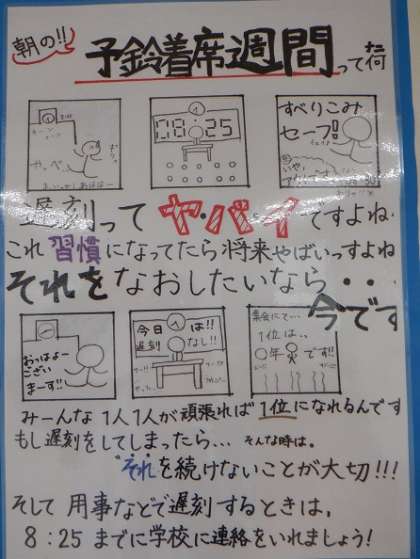 朝の!!
予鈴着席週間って何
なに
08:25
すべりこみ
セーフ!
遅刻ってヤ・バ・イですよね
これ習慣になってたら将来やばいっすよね
それをなおしたいなら・・
今です
おっはよー
ござい
まーす!!
今日は!!
遅刻なし!!
集会にて…
1位は…
○年○です!!
みーんな1人1人が頑張れば1位になれるんです
もし遅刻をしてしまったら… そんな時は。
それを続けないことが大切!!!
そして用事などで遅刻するときは,
8:25までに学校に連絡をいれましょう!